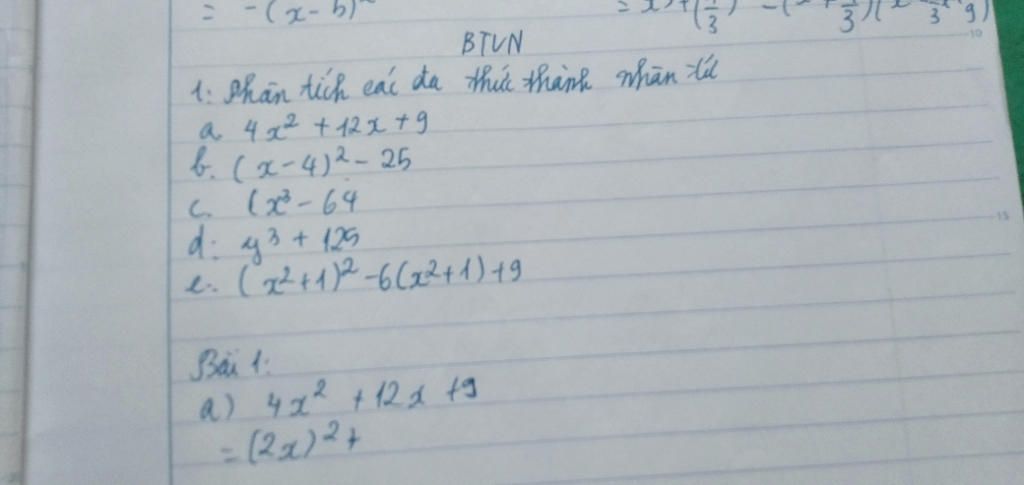 = -(x-5)²
BTVN
1: Phân tích các đa thức thành nhân tử
a. 4x² + 12x + 9
b. (x - 4)² - 25
c. (x³ - 64
d: y³ + 125
e.. (x²+1)² - 6(x²+1) + 9
Bài 1:
a) 4x² + 12x + 9
= (2x)² +
10
15